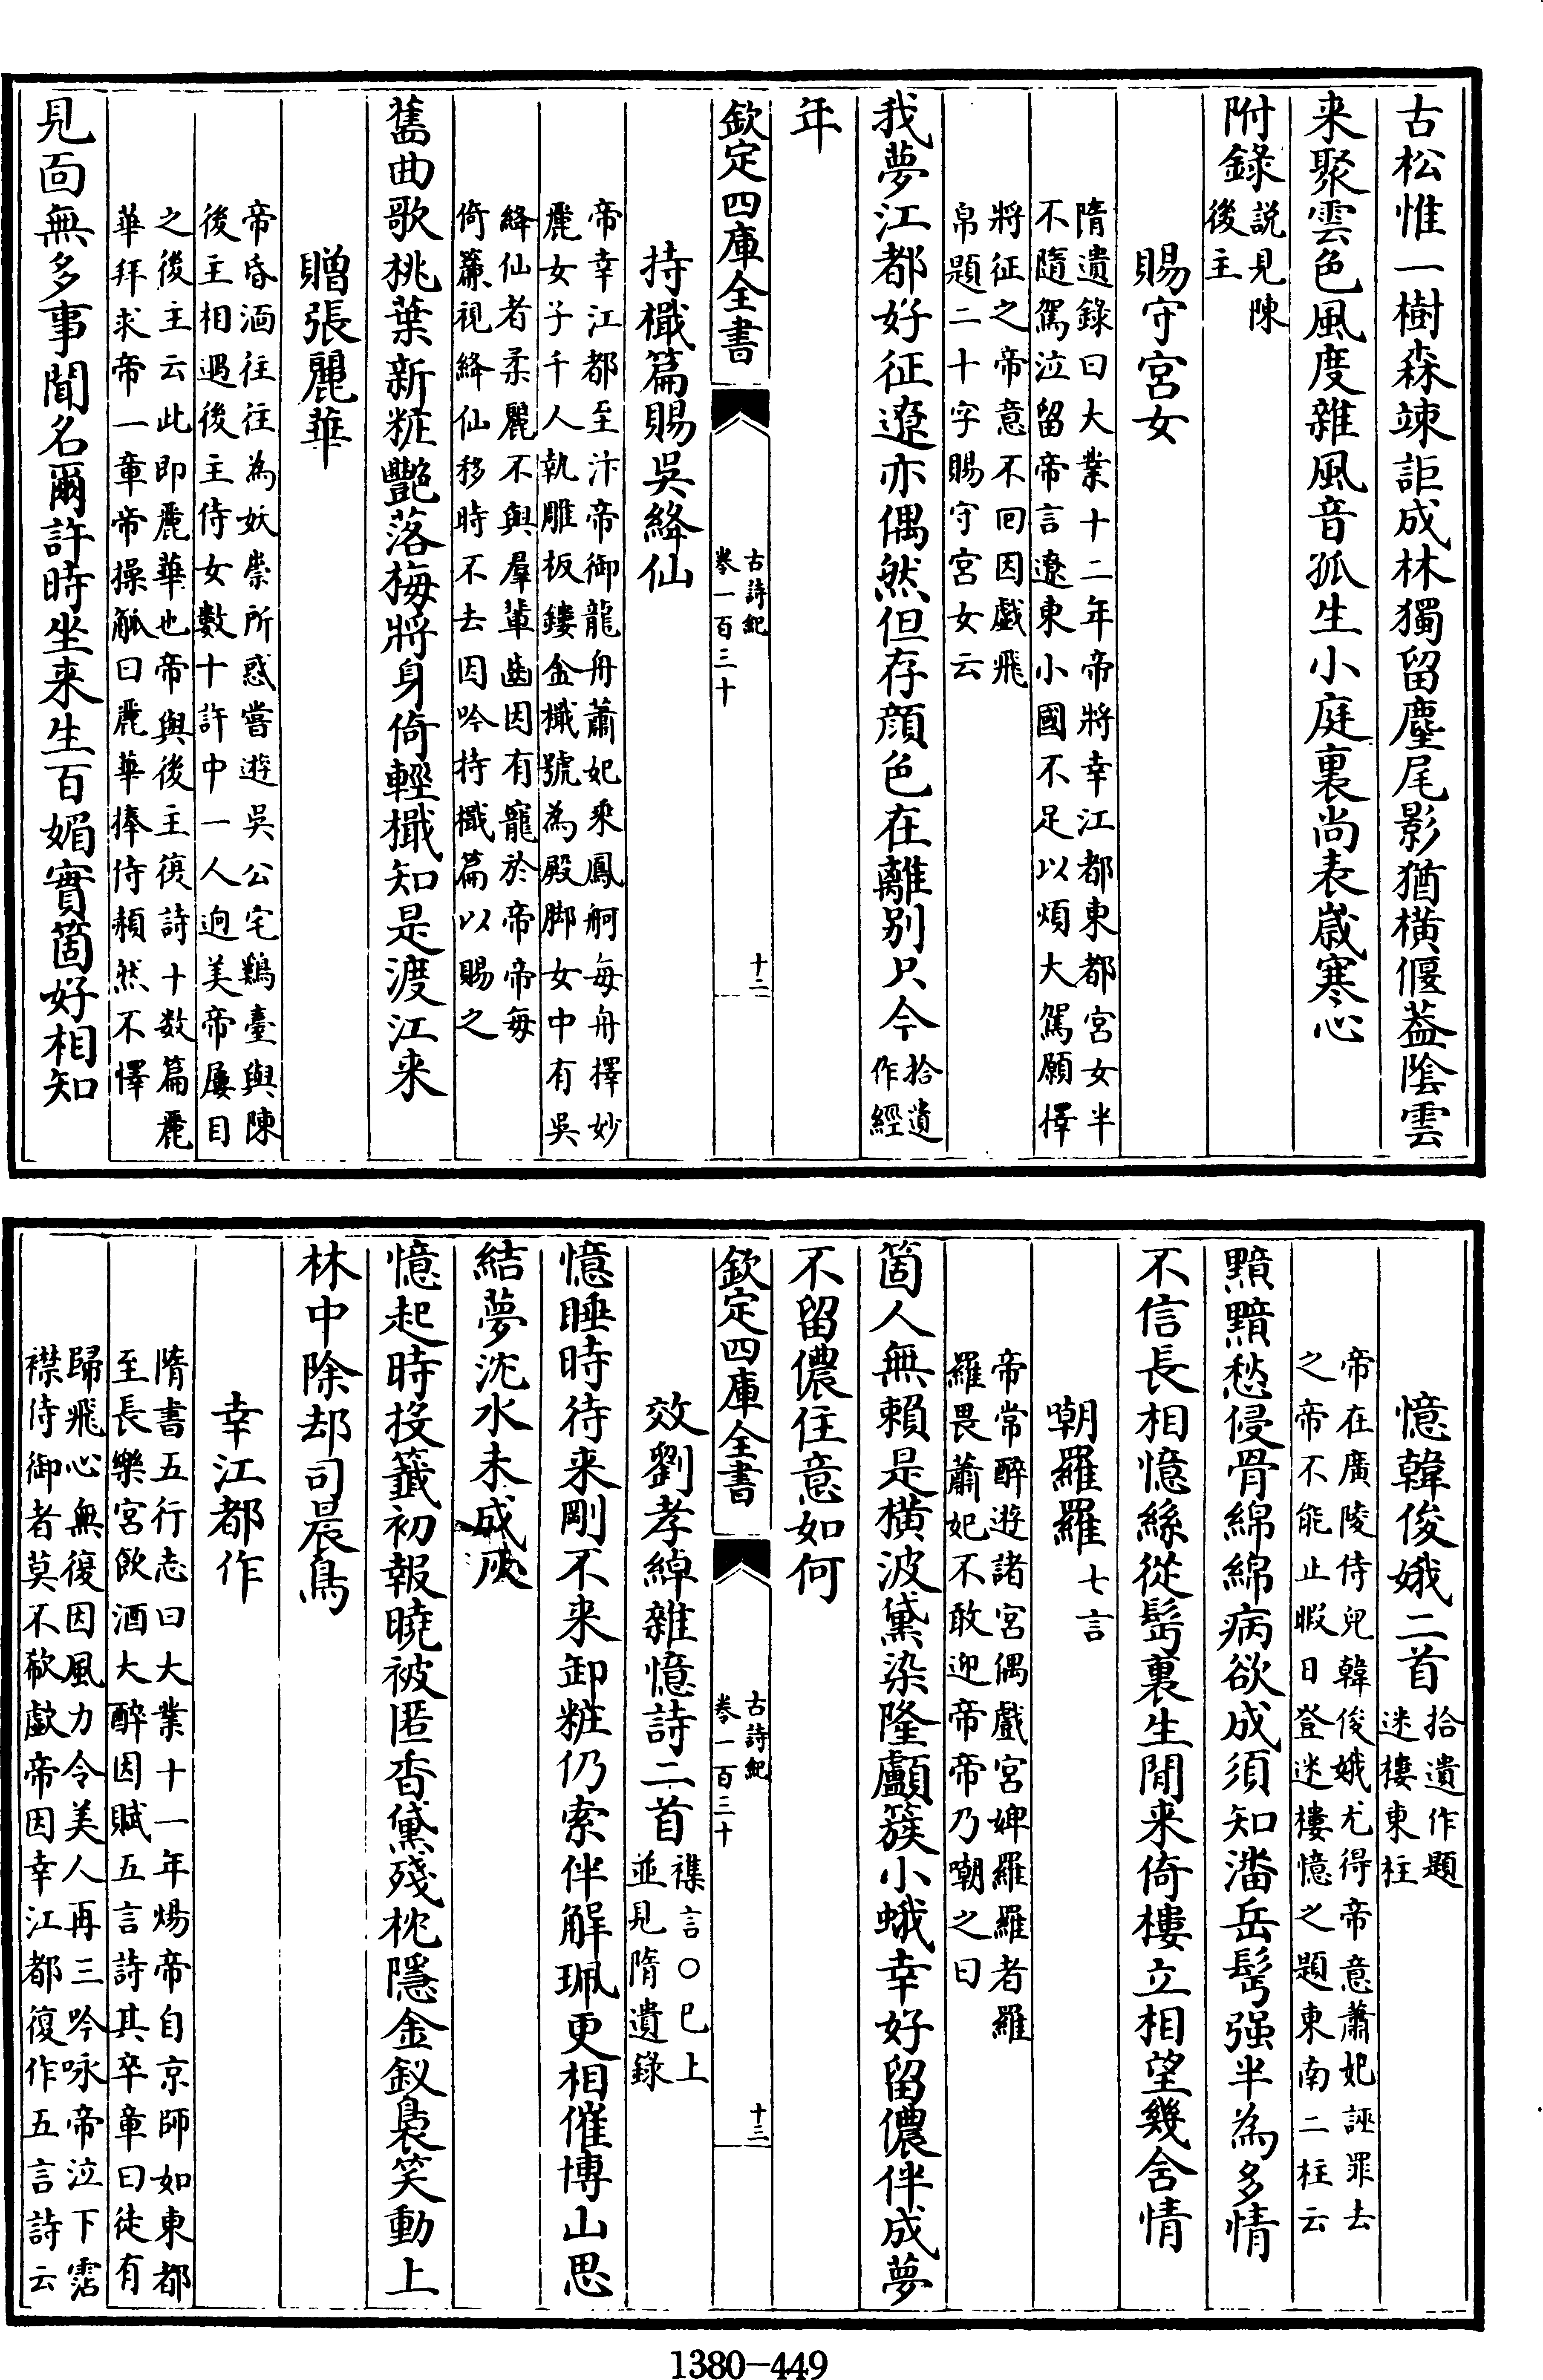 古松惟一樹森竦詎成林獨留塵尾影猶橫偃葢陰雲
来聚雲色風度雜風音孤生小庭裏尚表嵗寒心
附錄説見陳
後主
賜守宮女
隋遺錄曰大業十二年帝將幸江都東都宮女半
不隨駕泣留帝言遼東小國不足以煩大駕願擇
將征之帝意不囘因戲飛
帛題二十字賜守宮女云
我夢江都好征遼亦偶然但存顔色在離别只今拾遺
作經
年
欽定四庫全書
古詩紀
卷一百三十
十二
持檝篇賜吳絳仙
帝幸江都至汴帝御龍舟蕭妃乘鳳舸每舟擇妙
麗女子千人執雕板鏤金檝號為殿脚女中有吳
絳仙者柔麗不與羣輩齒因有寵於帝帝每
倚簾視絳仙移時不去因吟持檝篇以賜之
舊曲歌桃葉新粧艷落梅將身倚輕檝知是渡江来
贈張麗華
帝昏湎往往為妖祟所惑嘗遊吳公宅鷄臺與陳
後主相遇後主侍女數十許中一人逈美帝屢目
之後主云此即麗華也帝與後主復詩十数篇麗
華拜求帝一章帝操觚曰麗華捧侍頳然不懌
見面無多事聞名爾許時坐来生百媚實箇好相知
憶韓俊娥二首拾遺作題
迷樓東柱
帝在廣陵侍兒韓俊娥尤得帝意蕭妃誣罪去
之帝不能止暇日登迷樓憶之題東南二柱云
黯黯愁侵骨綿綿病欲成須知潘岳髩强半為多情
不信長相憶絲從髩裏生閒来倚樓立相望幾含情
嘲羅羅七言
帝常醉遊諸宮偶戲宮婢羅羅者羅
羅畏蕭妃不敢迎帝帝乃嘲之曰
箇人無賴是橫波黛染隆顱簇小蛾幸好留儂伴成夢
不留儂住意如何
欽定四庫全書
古詩紀
卷一百三十
十三
效劉孝綽雜憶詩二首襍言○已上
並見隋遺錄
憶睡時待来剛不来卸粧仍索伴解珮更相催博山思
結夢沈水未成灰
憶起時投籖初報曉被匿香黛殘枕隱金釵裊笑動上
林中除却司晨鳥
幸江都作
隋書五行志曰大業十一年煬帝自京師如東都
至長樂宮飲酒大醉因賦五言詩其卒章曰徒有
歸飛心無復因風力令美人再三吟咏帝泣下霑
襟侍御者莫不欷歔帝因幸江都復作五言詩云
1380-449